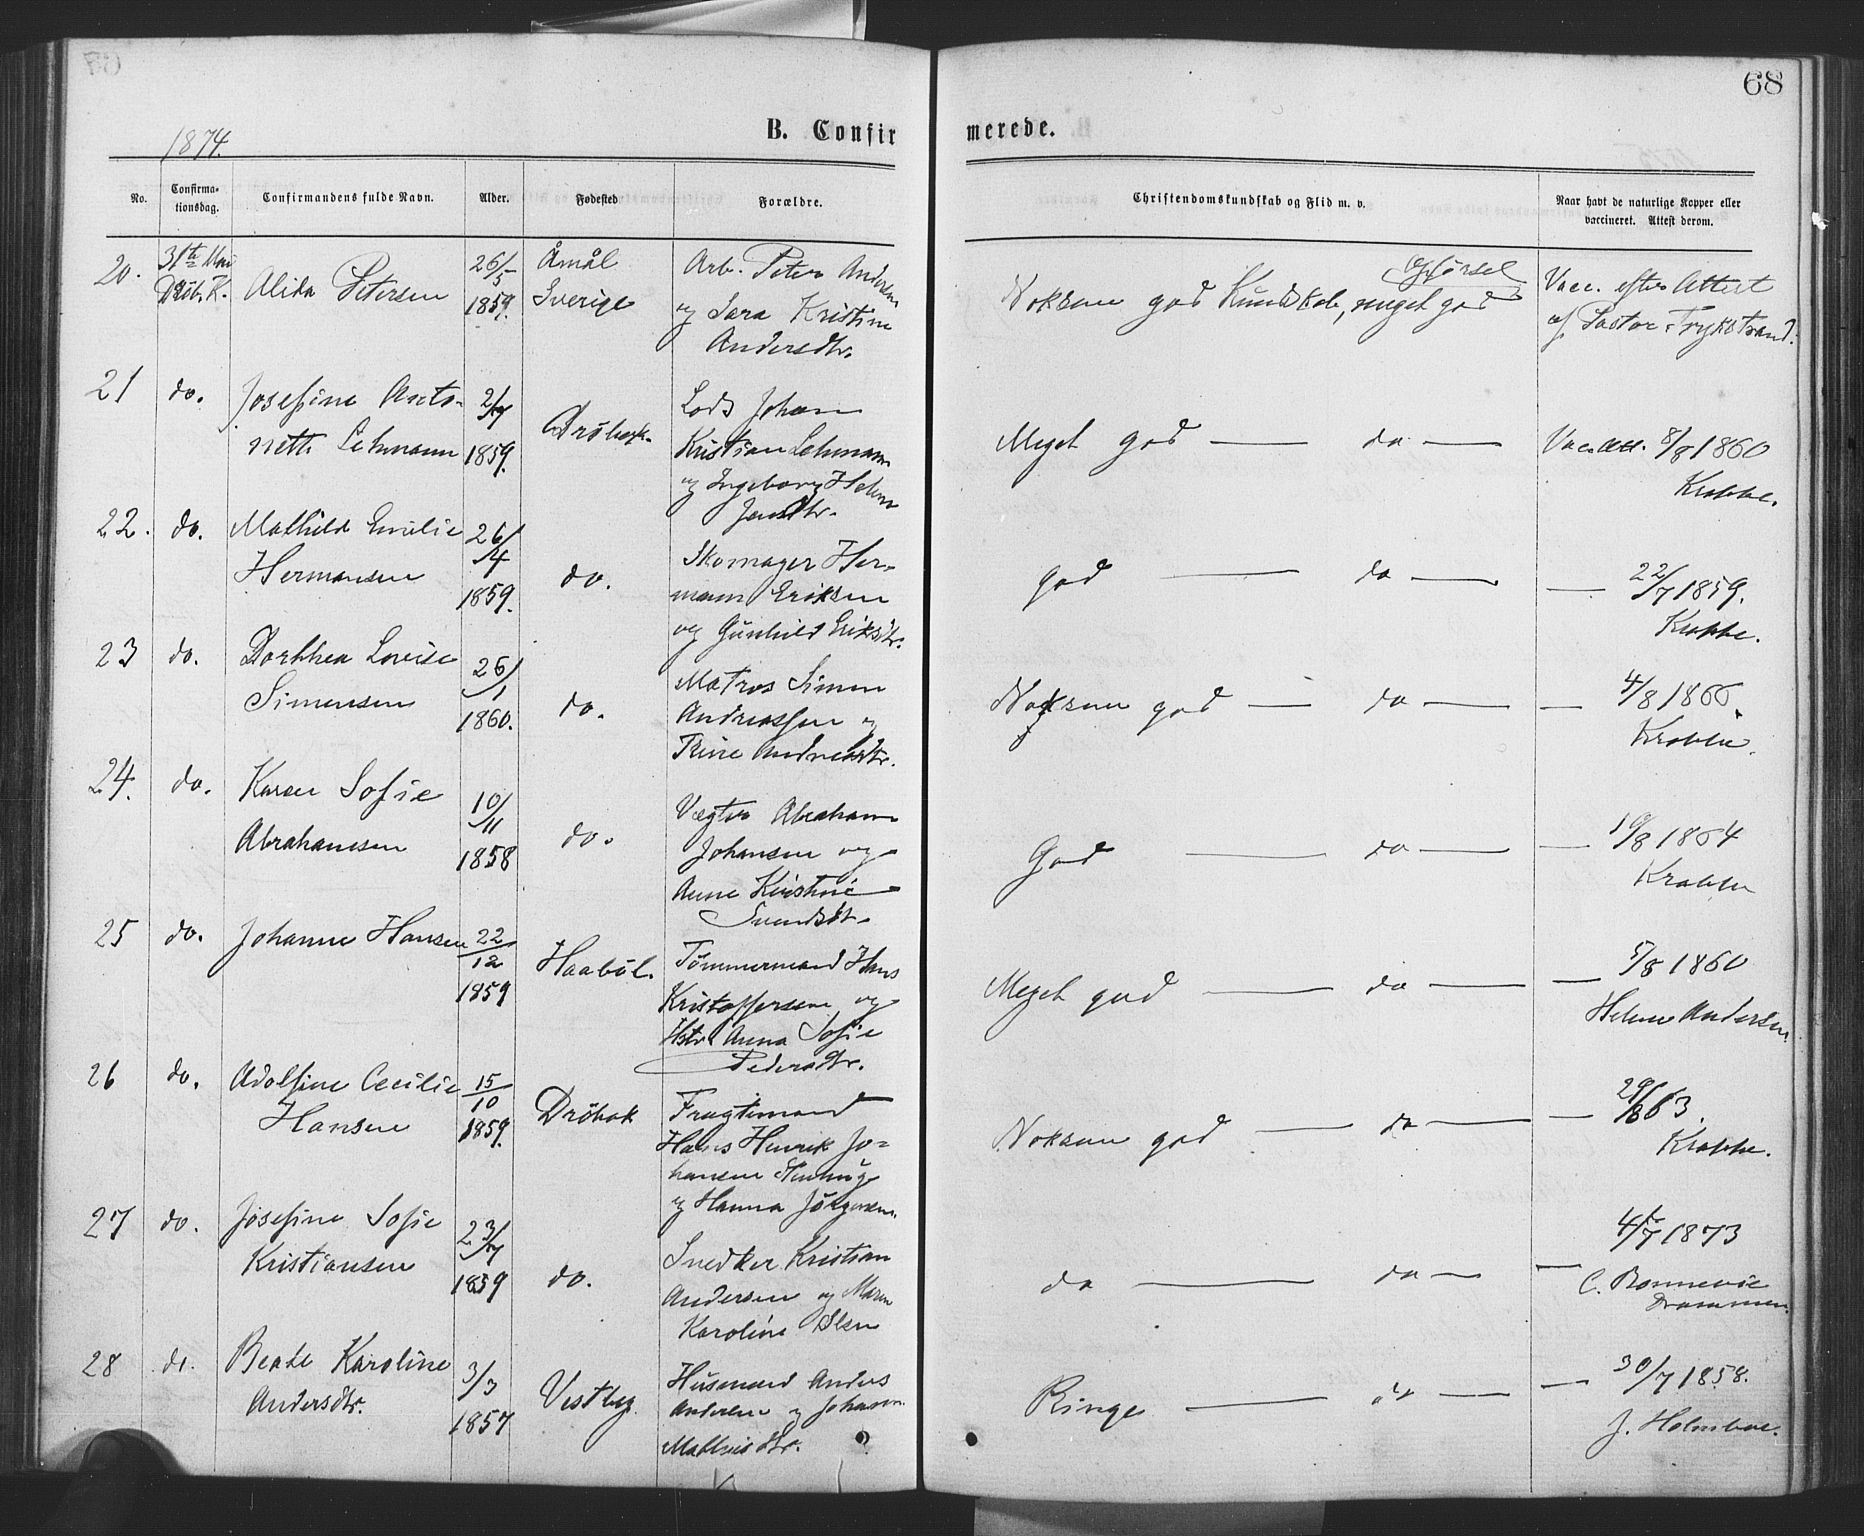 68
1874.
B. Confirmerede.
No. Confirmationsdag. Confirmandens fulde Navn. Alder. Fødested Forældre. Christendomskundskab og Flid m. v. Naar havt de naturlige Kopper eller vaccineret. Attest derom.
20. 31te Mai
Dröb. K. Alida Petersen 26/5
1859. Åmål
Sverige Arb. Peter Andersen
og Sara Kristine
Andersdtr. Noksom god Kundskab, meget god
Opførsel Vacc. efter Attest
af Pastor Trykstrand.
21 do. Josefine Anto-
nette Lehmann 2/7
1859. Dröbak. Lods Johan
Kristian Lehmann
og Ingeborg Helene
Jensdtr. Meget god — do — Vac. Att. 8/8 1860
Krabbe.
22. do. Mathilde Emilie
Hermansen 26/4
1859. do. Skomager Her-
mann Eriksen
og Gunhild Eriksdtr. god — do — — 22/7 1859.
Krabbe.
23 do. Dorthea Lovise
Simensen 26/1
1860. do. Matros Simen
Andreassen og
Trine Andreasdtr. Noksom god — do — — 4/8 1866.
Krabbe.
24. do. Karen Sofie
Abrahamsen 10/11
1858 do. Vægter Abraham
Johansen og
Anne Kirstine
Svendsdt. God — do — — 19/8 1864
Krabbe
25 do. Johanne Hansen 22/12
1859 Haaböl. Tömmermand Hans
Kristoffersen og
Hstr. Anna Sofie
Pedersdtr. Meget god — do — — 5/8 1860
Helene Andersen.
26 do. Adolfine Cecilie
Hansen 15/10
1859. Dröbak Fragtmand
Hans Henrik Jo-
hansen
og Hanna Jörgensen. Noksom god — do — — 29/8 63.
Krabbe.
27 do. Josefine Sofie
Kristiansen 23/7
1859 do. Snedker Kristian
Andersen og Maren
Karoline Olsen do — do — — 4/7 1873
C. Bonnevie
Drammen.
28 do. Beate Karoline
Andersdtr. 3/3
1857 Vestby. Husmand Anders
Andersen og Johanne
Mathisdtr. Ringe — do — — 30/7 1858.
J. Holmboe.